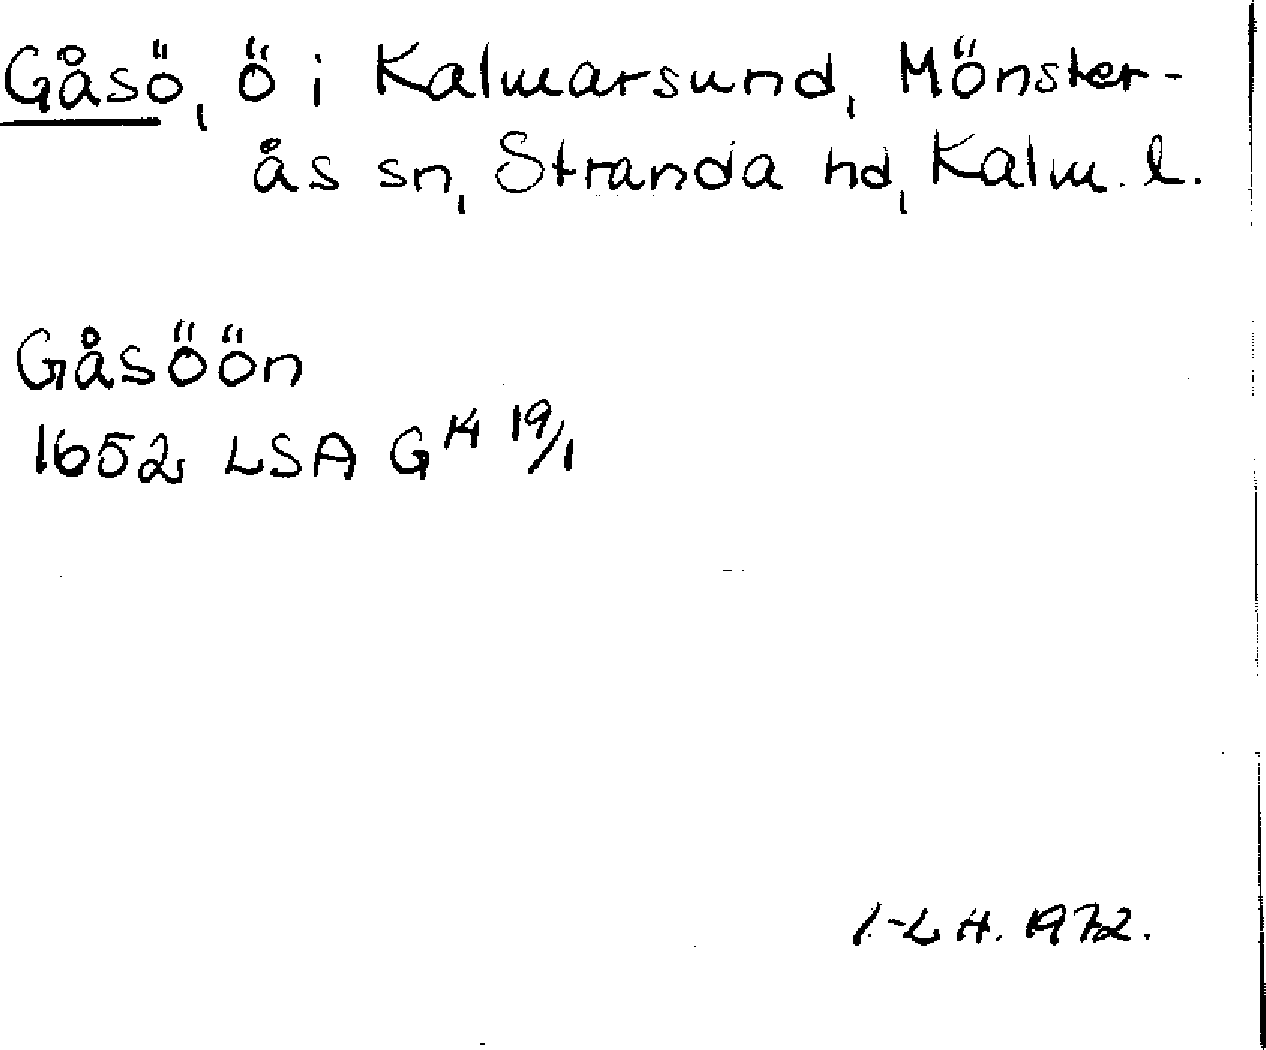 Gåsö, ö i Kalmarsund, Mönster-
ås sn, Stranda hd, Kalm. l.
Gåsöön
1652 LSA G 14 19/1
I-L H. 1972.